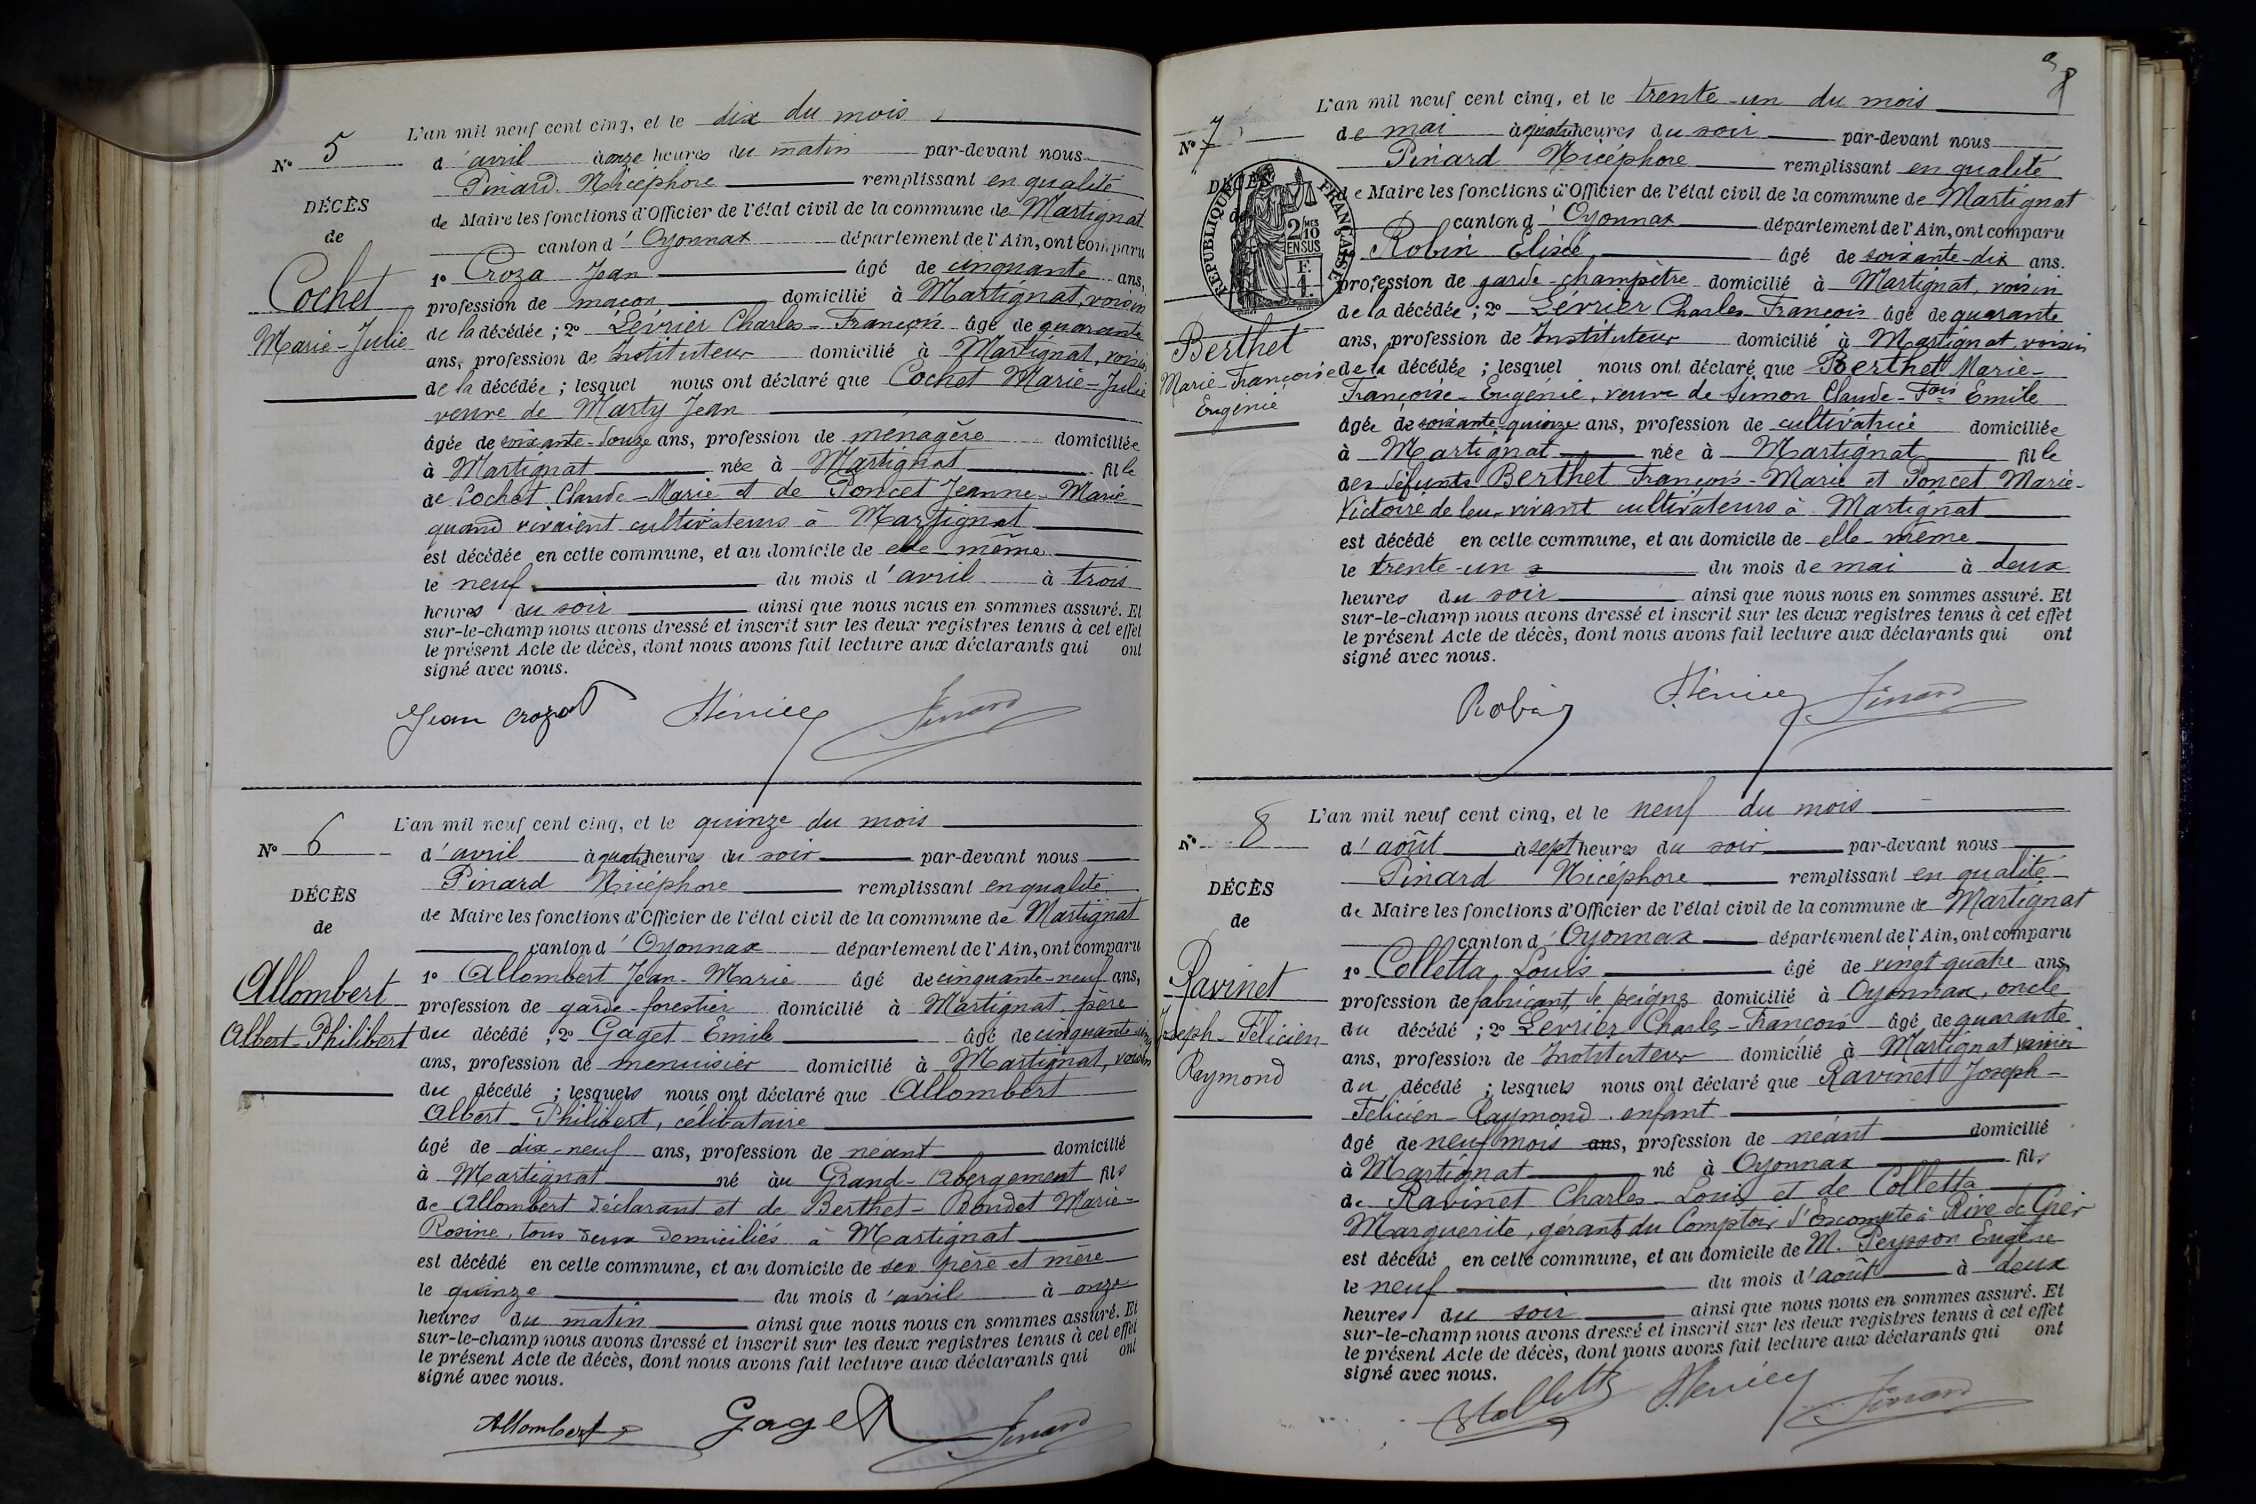 N° 5
DÉCÈS
de
Cochet
Marie-Julie
L'an mil neuf cent cinq, et le dix du mois
d'avril à onze heures du matin par-devant nous
Pinard Nicéphore remplissant en qualité
de Maire les fonctions d'Officier de l'état civil de la commune de Martignat
canton d'Oyonnax département de l'Ain, ont comparu
1° Croza Jean âgé de cinquante ans,
profession de maçon domicilié à Martignat, voisin
de la décédée ; 2° Lévrier Charles-François âgé de quarante
ans, profession de Instituteur domicilié à Martignat, voisin
de la décédée ; lesquel nous ont déclaré que Cochet Marie-Julie
veuve de Marty Jean
âgée de soixante-douze ans, profession de ménagère domiciliée
à Martignat née à Martignat fille
de Cochet Claude-Marie et de Poncet Jeanne-Marie
quand vivaient cultivateurs à Martignat
est décédée en cette commune, et au domicile de elle-même
le neuf du mois d'avril à trois
heures du soir ainsi que nous nous en sommes assuré. Et
sur-le-champ nous avons dressé et inscrit sur les deux registres tenus à cet effet
le présent Acte de décès, dont nous avons fait lecture aux déclarants qui ont
signé avec nous.
Jean Croza Pinard
N° 6
DÉCÈS
de
Allombert
Albert-Philibert
L'an mil neuf cent cinq, et le quinze du mois
d'avril à quatre heures du soir par-devant nous
Pinard Nicéphore remplissant en qualité
de Maire les fonctions d'Officier de l'état civil de la commune de Martignat
canton d'Oyonnax département de l'Ain, ont comparu
1° Allombert Jean-Marie âgé de cinquante-neuf ans,
profession de garde-forestier domicilié à Martignat, père
du décédé ; 2° Gaget Emile âgé de cinquante-cinq
ans, profession de menuisier domicilié à Martignat, voisin
du décédé ; lesquels nous ont déclaré que Allombert
Albert-Philibert, célibataire
âgé de dix-neuf ans, profession de néant domicilié
à Martignat né au Grand-Abergement fils
de Allombert déclarant et de Berthet-Bondet Marie-
Rosine, tous deux domiciliés à Martignat
est décédé en cette commune, et au domicile de ses père et mère
le quinze du mois d'avril à onze
heures du matin ainsi que nous nous en sommes assuré. Et
sur-le-champ nous avons dressé et inscrit sur les deux registres tenus à cet effet
le présent Acte de décès, dont nous avons fait lecture aux déclarants qui ont
signé avec nous.
Allombert Gaget Pinard
8
N° 7
DÉCÈS
de
RÉPUBLIQUE FRANÇAISE
2/10 EN SUS
Berthet
Marie-Françoise
Eugénie
L'an mil neuf cent cinq, et le trente-un du mois
de mai à quatre heures du soir par-devant nous
Pinard Nicéphore remplissant en qualité
de Maire les fonctions d'Officier de l'état civil de la commune de Martignat
canton d'Oyonnax département de l'Ain, ont comparu
Robin Elisée âgé de soixante-dix ans.
profession de garde-champêtre domicilié à Martignat, voisin
de la décédée ; 2° Lévrier Charles-François âgé de quarante
ans, profession de Instituteur domicilié à Martignat, voisin
de la décédée ; lesquel nous ont déclaré que Berthet Marie-
Françoise-Eugénie, veuve de Simon Claude-Fois Emile
âgée de soixante-quinze ans, profession de cultivatrice domiciliée
à Martignat née à Martignat fille
des défunts Berthet François-Marie et Poncet Marie-
Victoire de leur vivant cultivateurs à Martignat
est décédé en cette commune, et au domicile de elle-même
le trente-un du mois de mai à deux
heures du soir ainsi que nous nous en sommes assuré. Et
sur-le-champ nous avons dressé et inscrit sur les deux registres tenus à cet effet
le présent Acte de décès, dont nous avons fait lecture aux déclarants qui ont
signé avec nous.
Robin Pinard
N° 8
DÉCÈS
de
Ravinet
Joseph-Félicien
Raymond
L'an mil neuf cent cinq, et le neuf du mois
d'août à sept heures du soir par-devant nous
Pinard Nicéphore remplissant en qualité
de Maire les fonctions d'Officier de l'état civil de la commune de Martignat
canton d'Oyonnax département de l'Ain, ont comparu
1° Colletta Louis âgé de vingt quatre ans,
profession de fabricant de peignes domicilié à Oyonnax, oncle
du décédé ; 2° Lévrier Charles-François âgé de quarante
ans, profession de Instituteur domicilié à Martignat voisin
du décédé ; lesquels nous ont déclaré que Ravinet Joseph-
Félicien-Raymond enfant
âgé de neuf mois ans, profession de néant domicilié
à Martignat né à Oyonnax fils
de Ravinet Charles-Louis et de Colletta
Marguerite, gérant du Comptoir d'Escompte à Rive de Gier
est décédé en cette commune, et au domicile de M. Peysson Eugène
le neuf du mois d'août à deux
heures du soir ainsi que nous nous en sommes assuré. Et
sur-le-champ nous avons dressé et inscrit sur les deux registres tenus à cet effet
le présent Acte de décès, dont nous avons fait lecture aux déclarants qui ont
signé avec nous.
Pinard